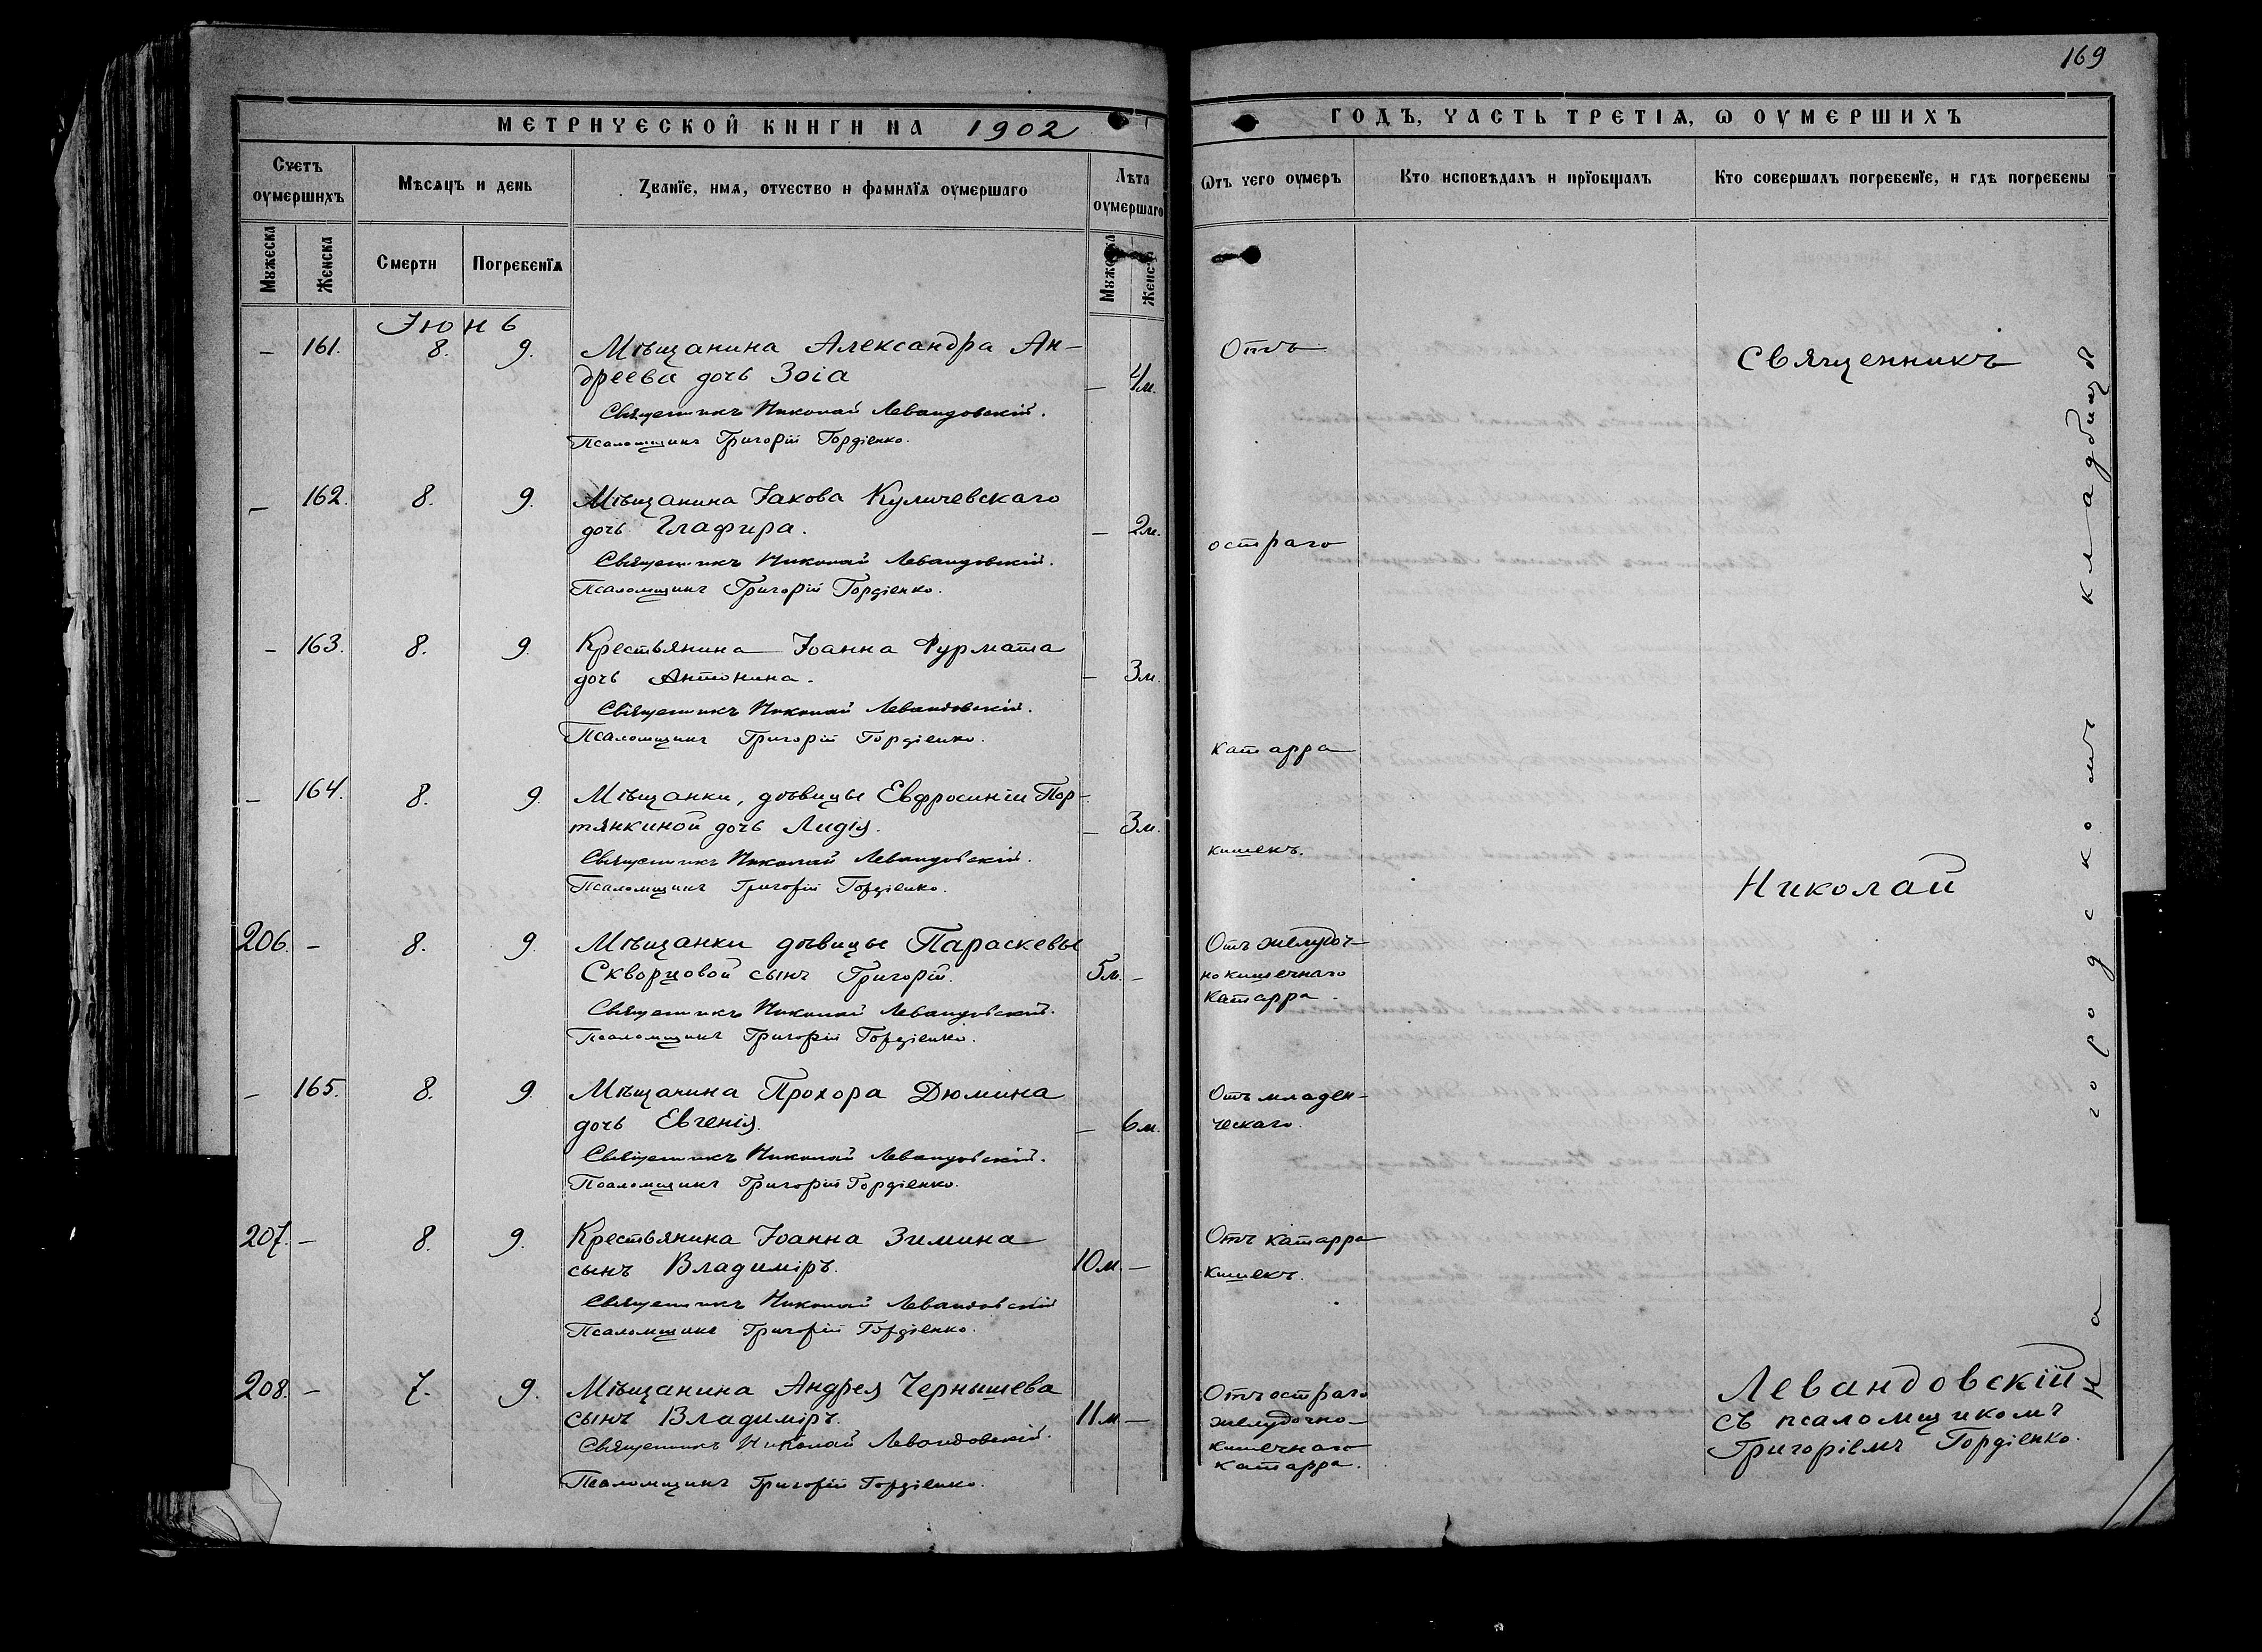 169
МЕТРИЧЕСКОЙ КНИГИ НА 1902
ГОДЪ, ЧАСТЬ ТРЕТІѦ, Ѡ ОУМЕРШИХЪ
Счетъ оумершихъ
Мѣсѧцъ и день
Званїе, имѧ, отчество и фамилїѧ оумершаго
Лѣта оумершаго
Ѿтъ чего оумеръ
Кто исповѣдалъ и прїобщалъ
Кто совершалъ погребенїе, и гдѣ погребены
Мужеска
Женска
Смерти
Погребенїѧ
Мужеска
Женска
Іюнь
– 161. 8. 9. Мѣщанина Александра Ан-
дреева дочь Зоіа – 4м.
Священникъ Николай Левандовскій.
Псаломщикъ Григорій Гордіенко.
– 162. 8. 9. Мѣщанина Іакова Куличевскаго
дочь Глафира. – 2м.
Священникъ Николай Левандовскій.
Псаломщикъ Григорій Гордіенко.
– 163. 8. 9. Крестьянина Іоанна Фурмата
дочь Антонина. – 3м.
Священникъ Николай Левандовскій.
Псаломщикъ Григорій Гордіенко.
– 164. 8. 9. Мѣщанки, дѣвицы Евфросиніи Пор-
тянкиной дочь Лидія. – 3м.
Священникъ Николай Левандовскій.
Псаломщикъ Григорій Гордіенко.
206. – 8. 9. Мѣщанки дѣвицы Параскевы
Скворцовой сынъ Григорій. 5м. –
Священникъ Николай Левандовскій.
Псаломщикъ Григорій Гордіенко.
– 165. 8. 9. Мѣщанина Прохора Дюмина
дочь Евгенія. – 6м.
Священникъ Николай Левандовскій.
Псаломщикъ Григорій Гордіенко.
207. – 8. 9. Крестьянина Іоанна Зимина
сынъ Владиміръ. 10м. –
Священникъ Николай Левандовскій
Псаломщикъ Григорій Гордіенко.
208. – 7. 9. Мѣщанина Андрея Чернышева
сынъ Владиміръ. 11м –
Священникъ Николай Левандовскій.
Псаломщикъ Григорій Гордіенко.
Отъ
остраго
катарра
кишекъ.
Отъ желудоч-
нокишечнаго
катарра.
Отъ младен-
ческаго.
Отъ катарра
кишекъ.
Отъ остраго
желудочно-
кишечнаго
катарра.
Священникъ
Николай
Левандовскій
съ псаломщикомъ
Григоріемъ Гордіенко.
На городскомъ кладбищѣ